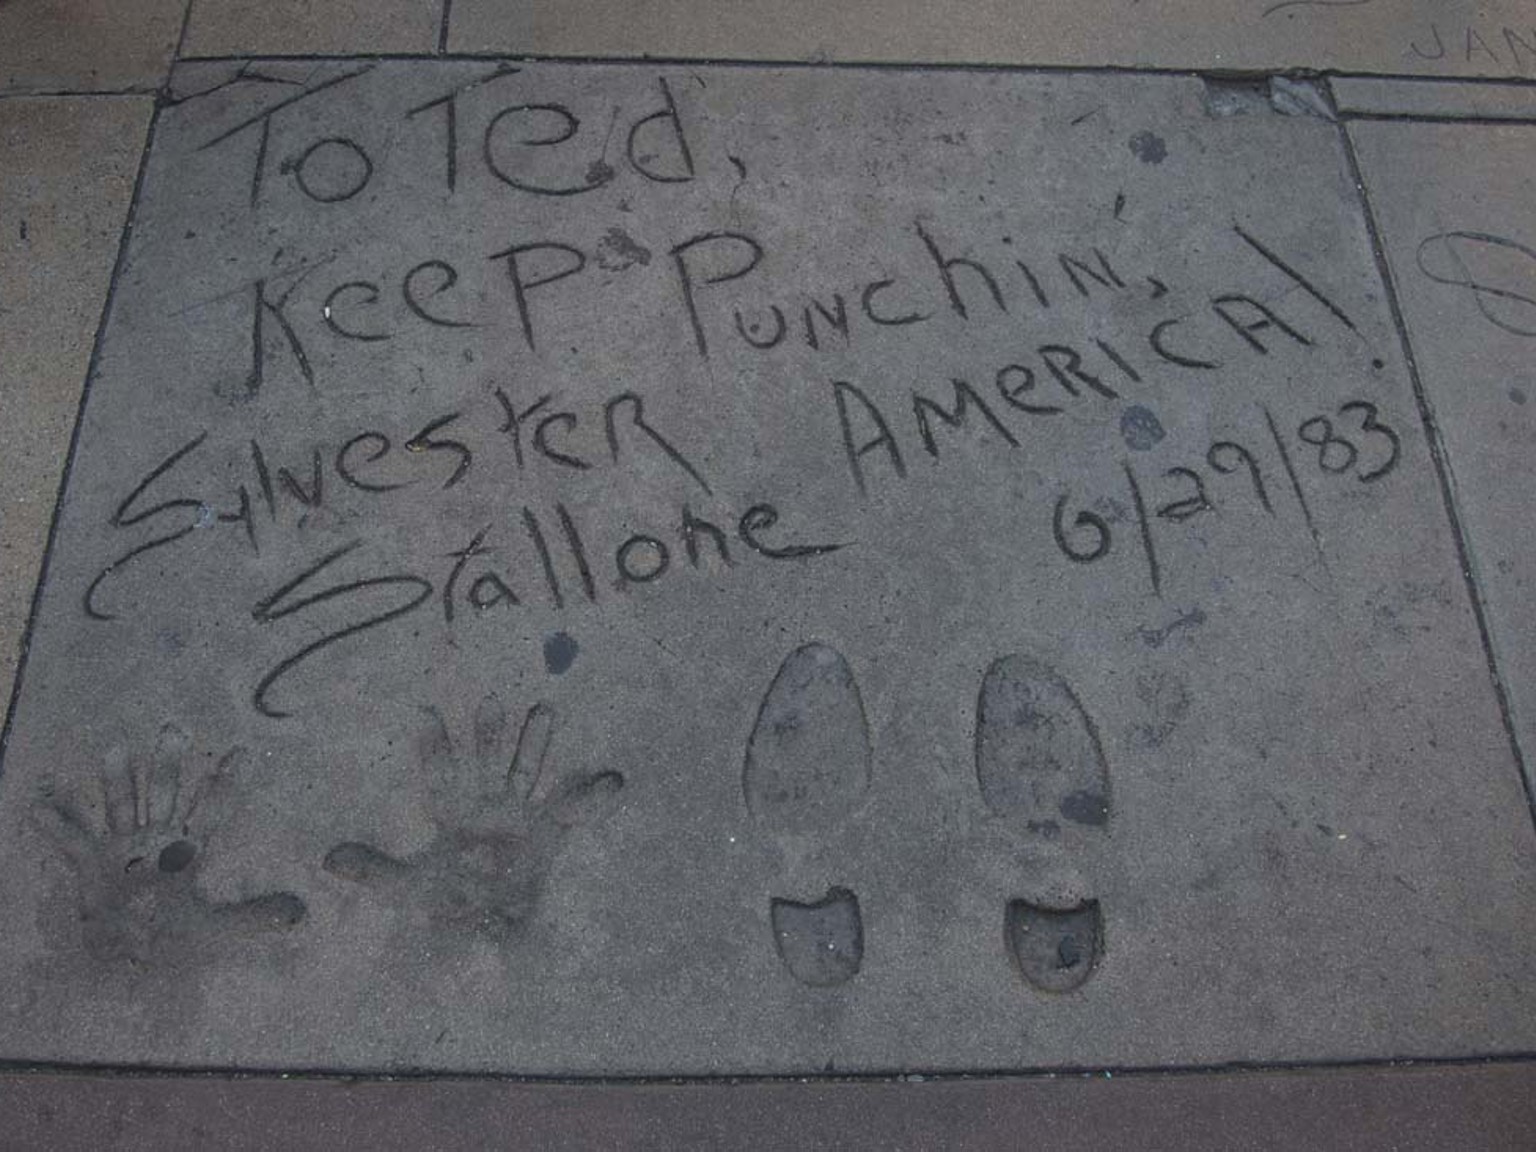 To Ted,
Keep Punchin,
America!
Sylvester
Stallone
6/29/83
JAN